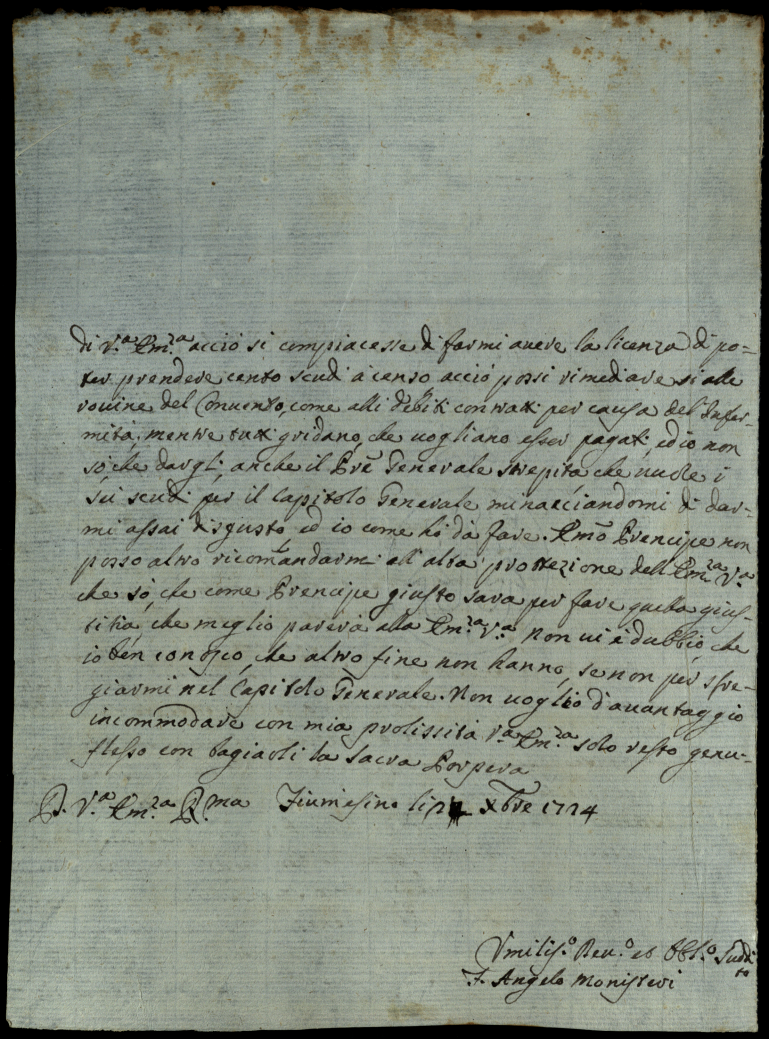 di V.ª Em.ᶻᵃ acciò si compiacesse di farmi avere la licenza di po=
ter prendere cento scudi à censo acciò possi rimediare si alle
rovine del Convento, come alli debiti contratti per causa dell'Infer=
mità, mentre tutti gridano, che vogliano esser pagati, ed io non
sò, che dargli, anche il Pre Generale strepita che vuole i
sei scudi per il Capitolo Generale minacciandomi di dar=
mi assai disgusto, ed io come hò da fare. Emo Prencipe non
posso altro ricomandarmi all'alta prottezione dell'Em.ᶻᵃ V.ª
che sò, che come Prencipe giusto sarà per fare quella gius=
titia, che meglio parerà alla Em.ᶻᵃ V.ª non vi è dubbio, che
io ben conosco, che altro fine non hanno, se non per sfre=
giarmi nel Capitolo Generale. Non voglio d'avantaggio
incommodare con mia prolissità V.ª Em.ᶻᵃ solo resto genu=
flesso con bagiaoli la Sacra Porpora
D. V.ª Em.ᶻᵃ R.ᵐᵃ Fiumesino li Xbre 1724
Umilis.º Dev.º et Obl.º Suddito
F. Angelo Monisteri